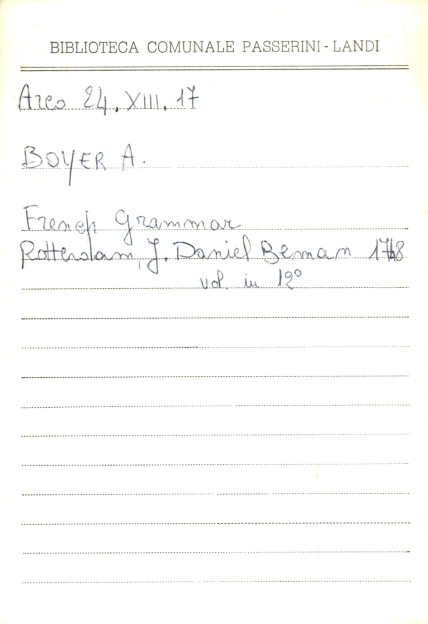 BIBLIOTECA COMUNALE PASSERINI - LANDI
Arco 24. XIII. 17
BOYER A.
French Grammar
Rotterdam, J. Daniel Beman
vol. in 12°